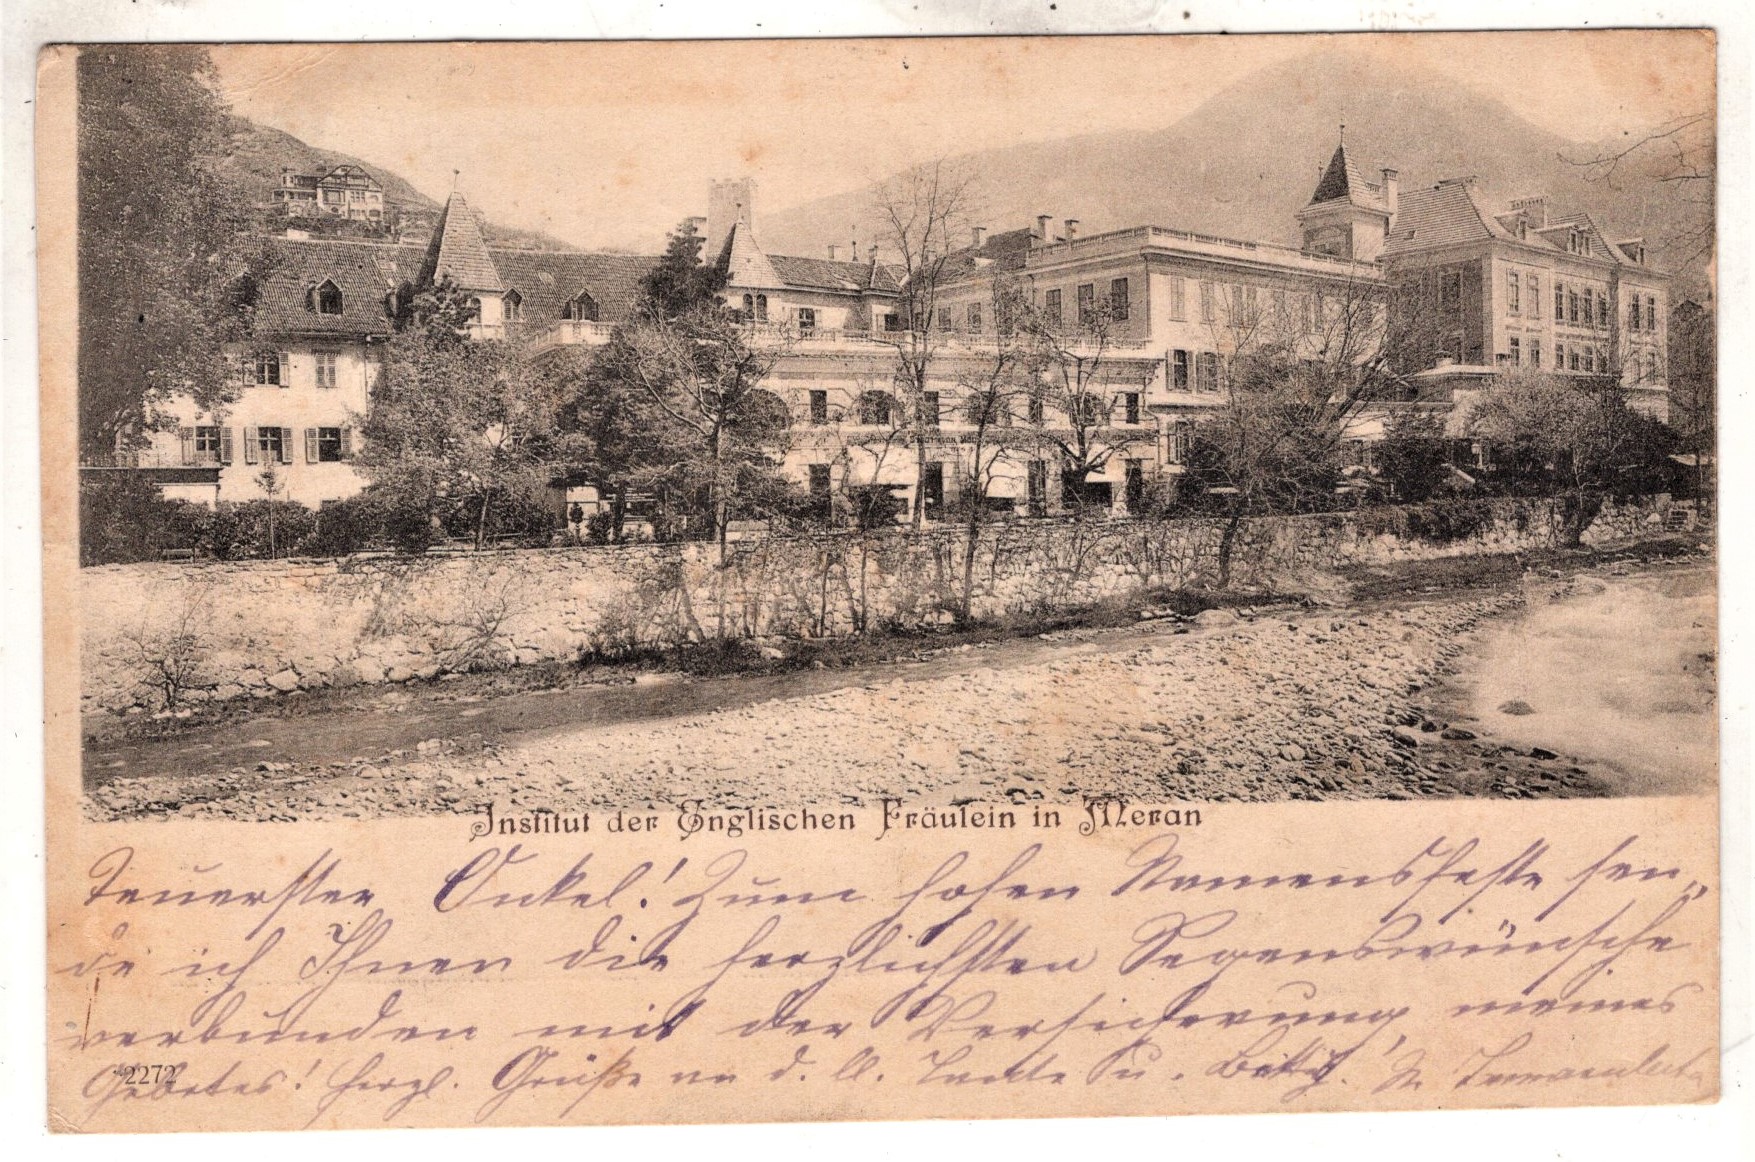 Institut der Englischen Fräulein in Meran
Teuerster Onkel! Zum hohen Namensfeste sen„
de ich Ihnen die herzlichsten Segenswünsche
verbunden mit der Versicherung meines
Gebetes! Herzl. Grüße an d. lb. Tante Su. M. Immaculata
2272